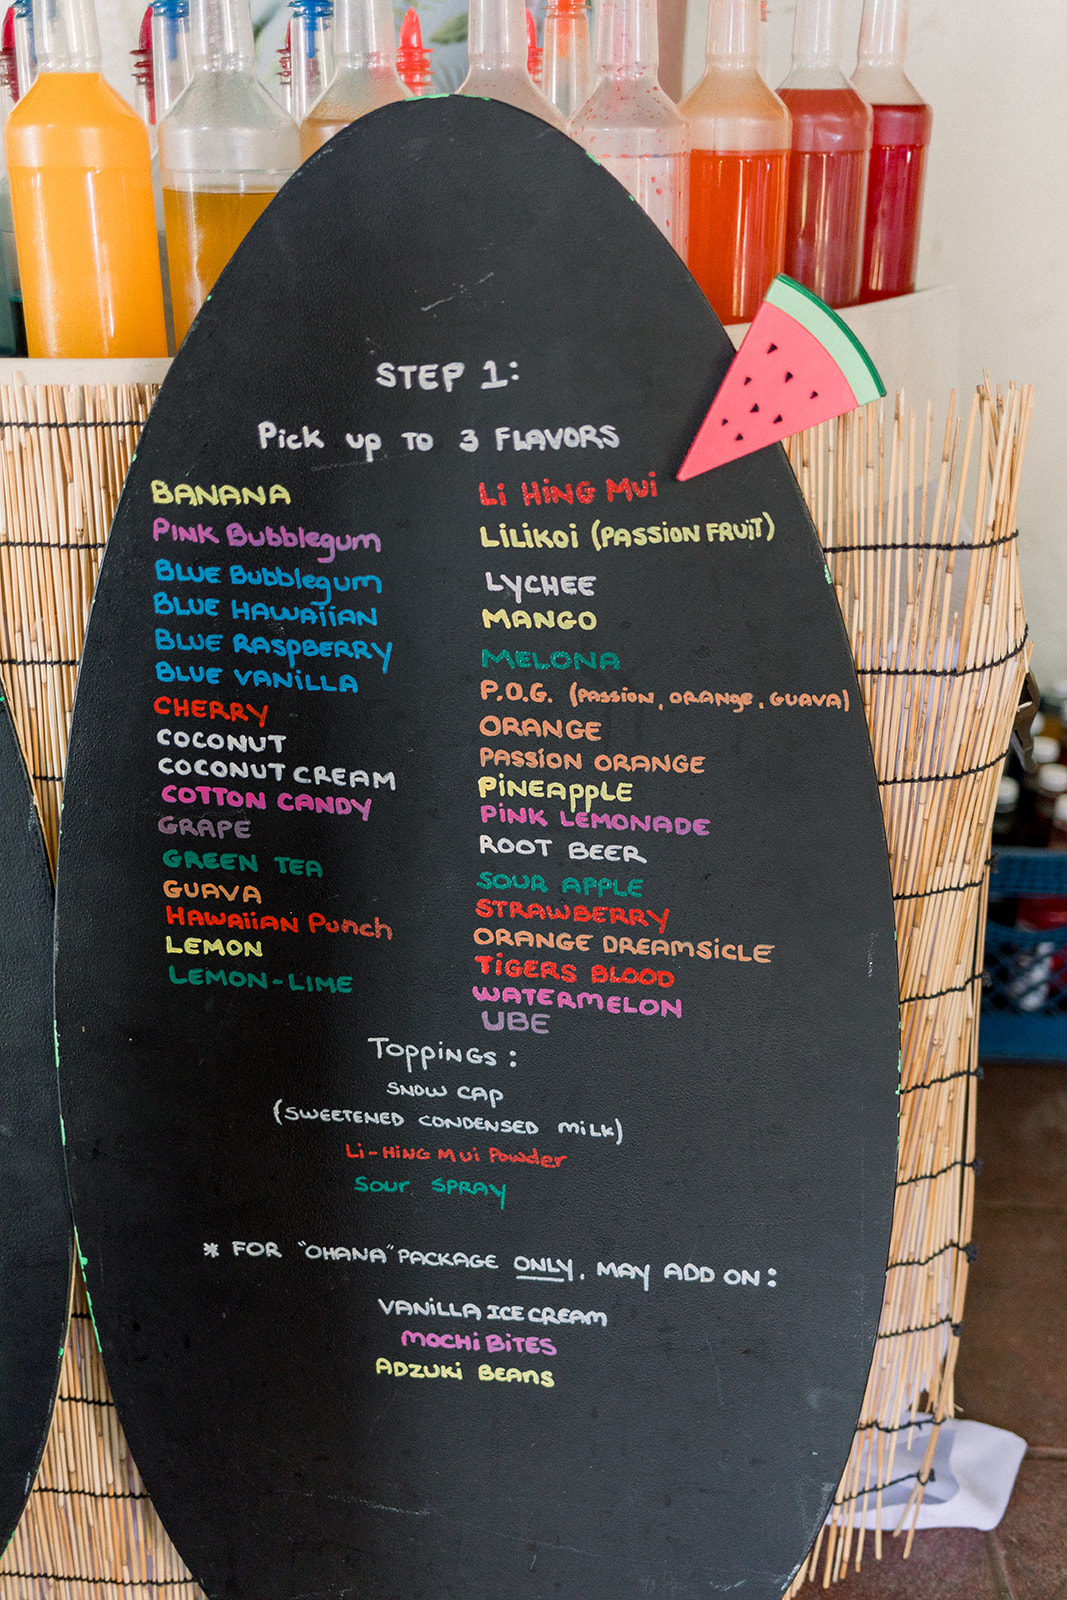 STEP 1:
Pick up to 3 FLAVORS
BANANA
PINK Bubblegum
BLUE Bubblegum
BLUE HAWAiiAN
BLUE RASpBERRY
BLUE VANiLLA
CHERRY
COCONUT
COCONUT CREAM
COTTON CANDY
GRAPE
GREEN TEA
GUAVA
HAWAiiAN Punch
LEMON
LEMON-LIME
Li HiNG Mui
LiLiKoi (PASSION FRUiT)
LYCHEE
MANGO
MELONA
P.O.G. (PASSION, ORANGE, GUAVA)
ORANGE
PASSION ORANGE
PiNEAppLE
PiNK LEMONADE
ROOT BEER
SOUR APPLE
STRAWBERRY
ORANGE DREAMSiCLE
TiGERS BLOOD
WATERMELON
UBE
TOppiNGS:
SNOW CAP
(SWEETENED CONDENSED MiLK)
Li-HiNG Mui Powder
Sour SPRAY
* FOR "OHANA" PACKAGE ONLY, MAY ADD ON:
VANiLLA ICE CREAM
MOCHi BiTES
ADZUKi BEANS